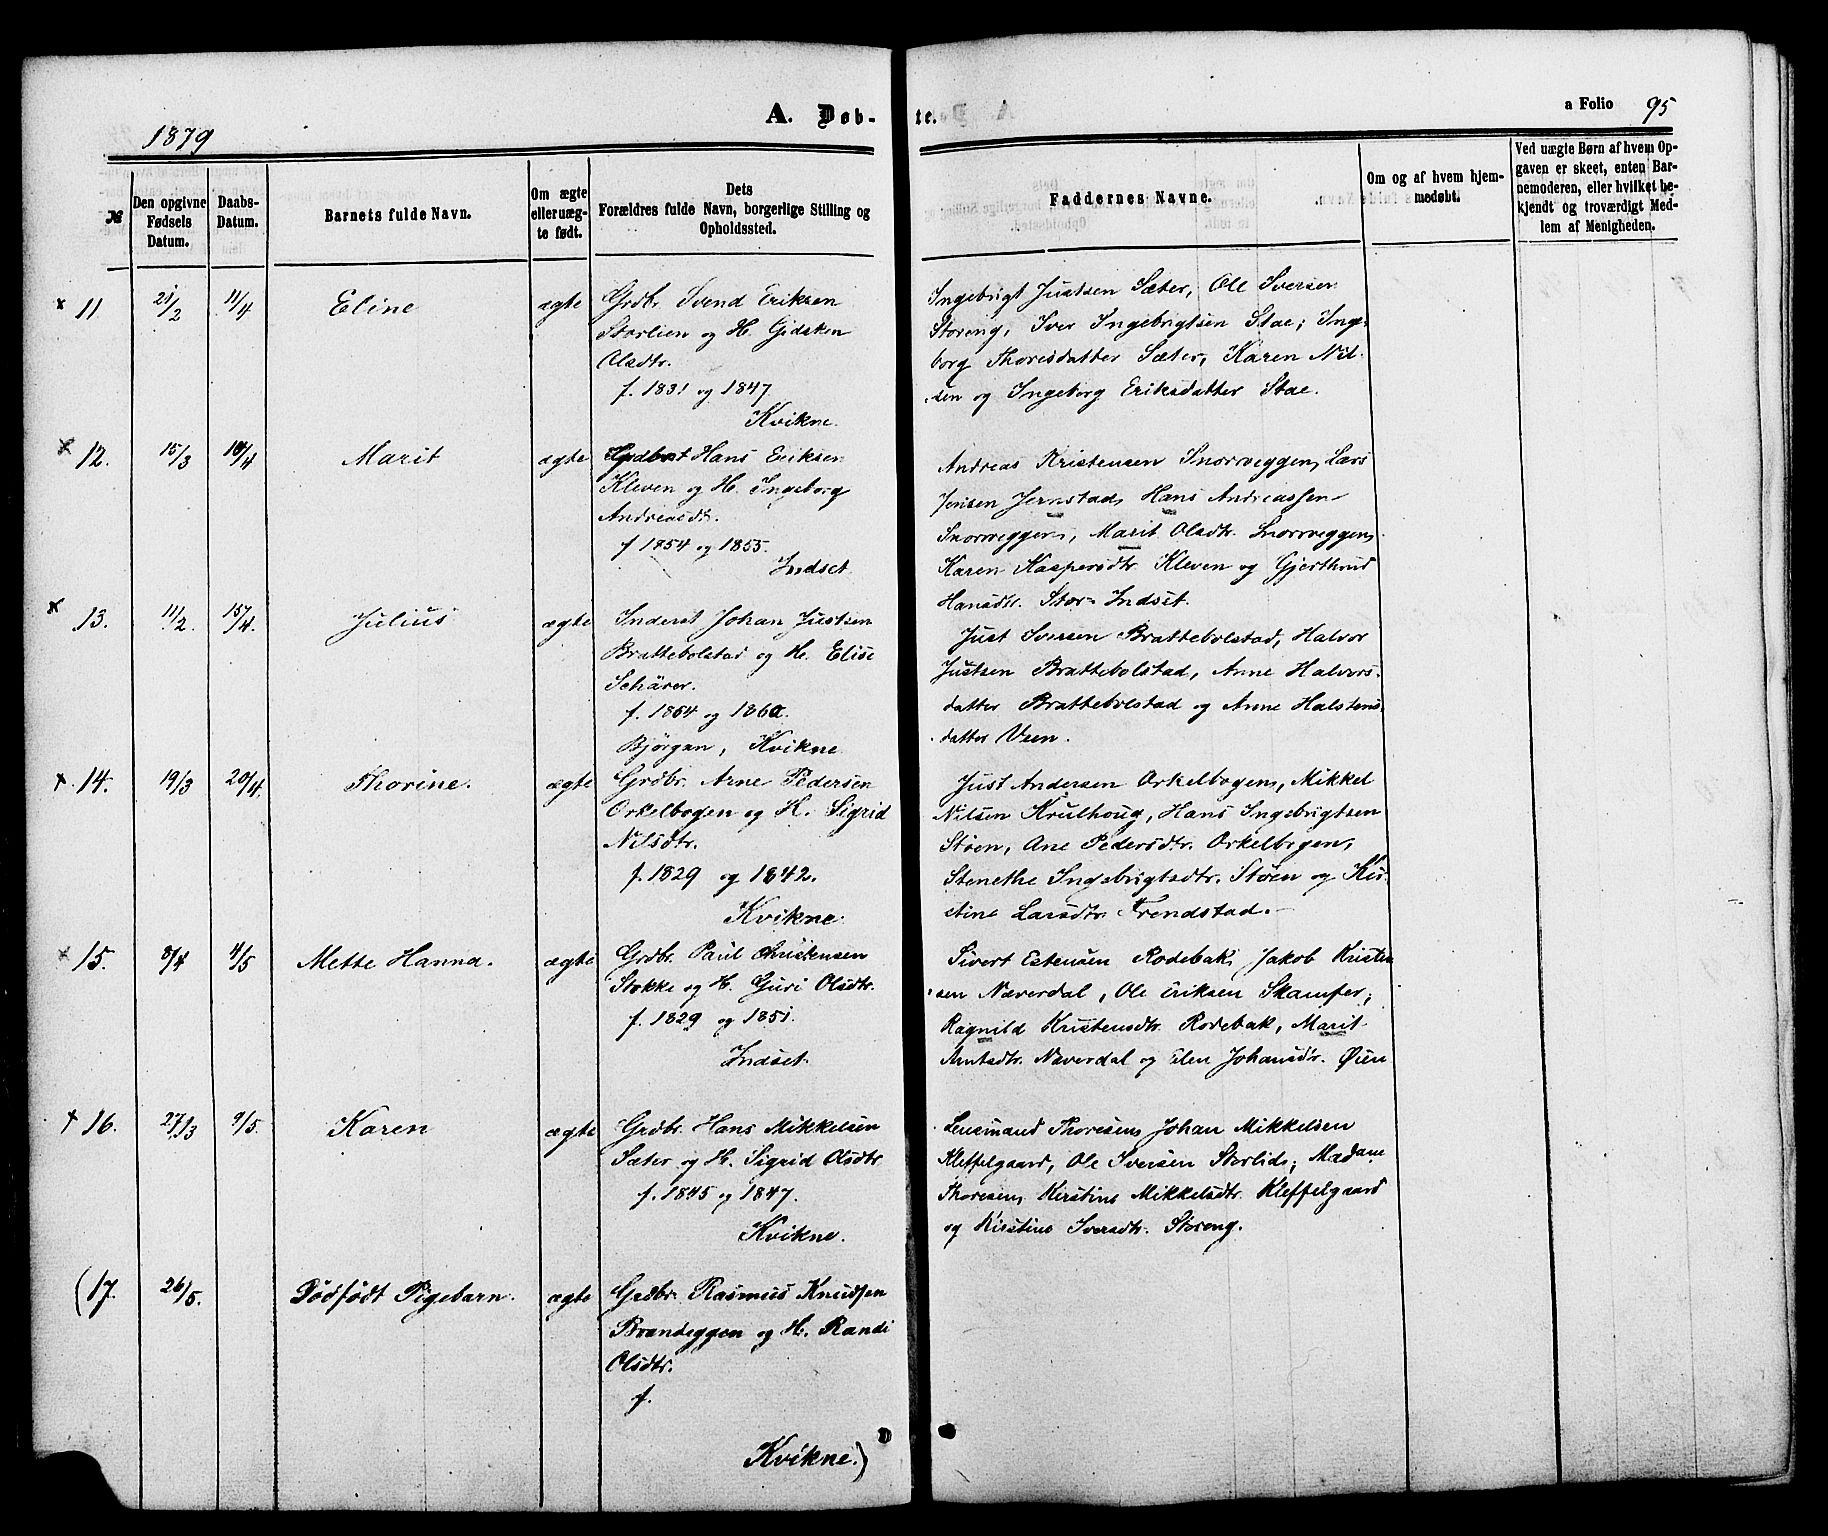 1879
A. Døbte.
a Folio 95
№
Den opgivne Fødsels Datum.
Daabs-Datum.
Barnets fulde Navn.
Om ægte eller uægte født.
Dets Forældres fulde Navn, borgerlige Stilling og Opholdssted.
Faddernes Navne.
Om og af hvem hjemmedøbt.
Ved uægte Børn af hvem Opgaven er skeet, enten Barnemoderen, eller hvilket bekjendt og troværdigt Medlem af Menigheden.
x 11 21/2 11/4 Eline ægte
Grdbr. Svend Eriksen
Storlien og H. Gidsken
Olsdtr.
f. 1831 og 1847
Kvikne.
Ingebrigt Justsen Sæter, Ole Iversen
Storeng, Iver Ingebrigtsen Stae; Inge-
borg Thoresdatter Sæter, Karen Nil-
sen og Ingeborg Eriksdatter Stae.
x 12. 15/3 14/4 Marit ægte
Hans Eriksen
Kleven og H. Ingeborg
Andreasdt.
f 1854 og 1855.
Indset
Andreas Kristensen Snorveggen, Lars
Jensen Jernstad, Hans Andreassen
Snorveggen, Marit Olsdtr. Snorveggen,
Karen Kaspersdtr Kleven og Gjertrud
Hansdtr. Stor-Indset.
x 13. 11/2. 15/4. Julius ægte
Inderst Johan Justsen
Brattebolstad og H. Elise
Schärer.
f. 1854 og 1860.
Bjørgan, Kvikne
Just Iversen Brattebolstad, Halvor
Justsen Brattebolstad, Anne Halvors-
datter Brattebolstad og Anne Halstens-
datter Veen.
+ 14. 19/3 20/4. Thorine. ægte
Grdbr. Arne Pedersen
Orkelbogen og H. Sigrid
Nilsdtr.
f. 1829 og 1842.
Kvikne.
Just Andersen Orkelbogen, Mikkel
Nilsen Krulhoug, Hans Ingebrigtsen
Støen, Ane Pedersdtr. Orkelbogen,
Stenethe Ingebrigtsdtr. Støen og Kir-
stine Larsdtr. Frendstad.
x 15. 8/4 4/5 Mette Hanna. ægte
Grdbr. Paul Christensen
Stokke og H. Guri Olsdtr.
f. 1829 og 1851.
Indset.
Sivert Estensen Rodebak, Jakob Kristen-
sen Næverdal, Ole Eriksen Skamfer;
Ragnild Kristensdtr. Rodebak, Marit
Arntsdtr. Næverdal og Elen Johansdtr. Øien
+ 16. 27/3 9/5. Karen ægte
Grdbr. Hans Mikkelsen
Sæter og H. Sigrid Olsdtr.
f. 1845 og 1847.
Kvikne.
Lensmand Thoresen, Johan Mikkelsen
Kleffelgaard, Ole Iversen Storlid; Madame
Thoresen, Kerstine Mikkelsdtr. Kleffelgaard
og Kirstine Iversdtr. Storeng.
(17. 26/5. Dødfødt Pigebarn. ægte
Grdbr. Rasmus Knudsen
Brandeggen og H. Randi
Olsdtr.
f.
Kvikne.)